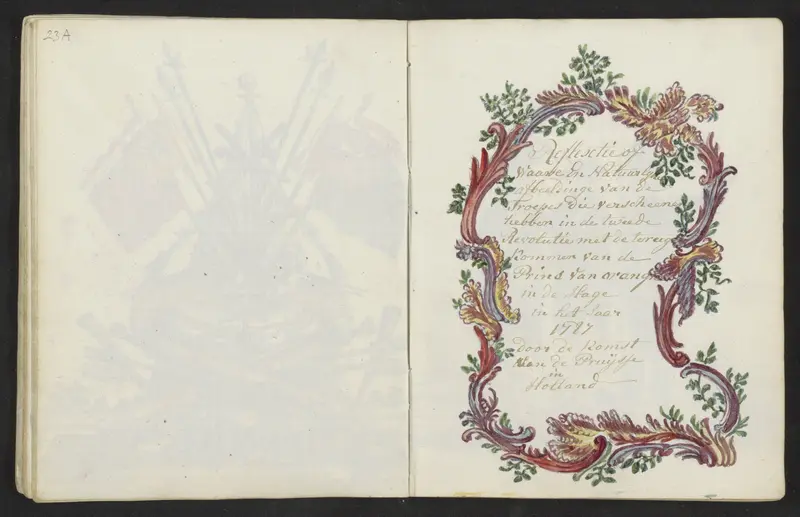 23A
Reflectie of
Waare en Natuurlyke
afbeeldinge van de
Troepes die verscheene
hebben in de tweede
Revolutie met de terug
kommen van de
Prins van orange
in de Hage
in het Jaar
1787
door de komst
van de Pruysse
in
Holland